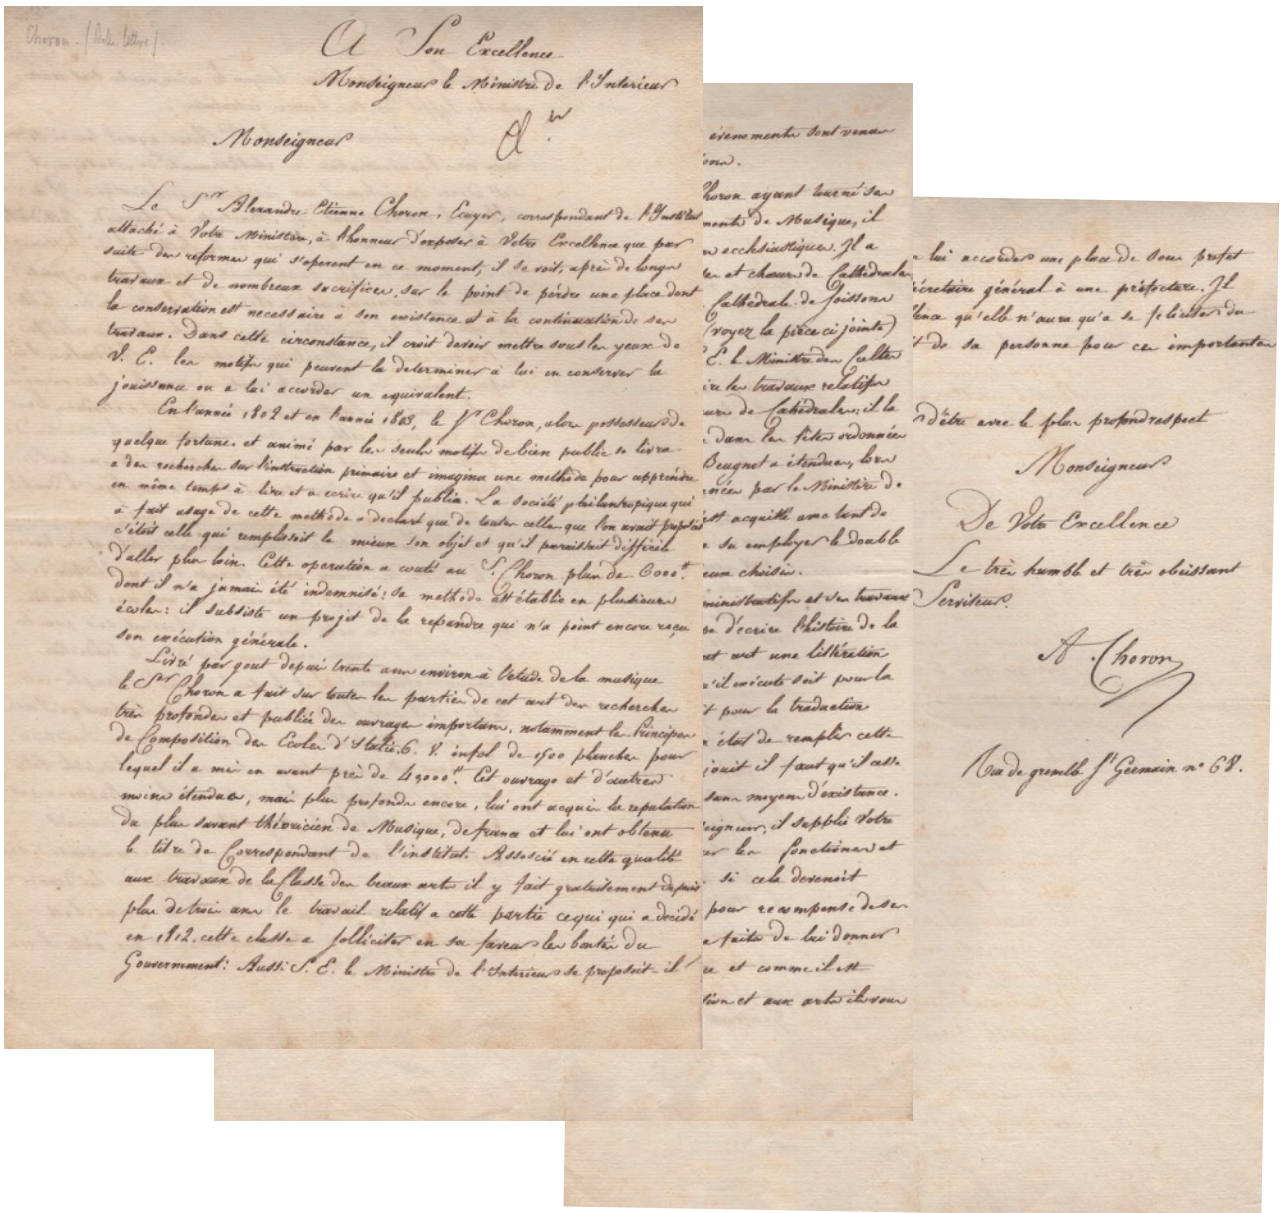 Choron
A Son Excellence
Monseigneur le Ministre de l'Interieur
Monseigneur
Le Sr Alexandre Etienne Choron, Ecuyer, correspondant de l'Institut
attaché à Votre Ministère, a l'honneur d'exposer à Votre Excellence que par
suite des reformes qui s'operent en ce moment, il se voit, après de longs
travaux et de nombreux sacrifices, sur le point de perdre une place dont
la conservation est necessaire à son existence et à la continuation de ses
travaux. Dans cette circonstance, il croit devoir mettre sous les yeux de
V. E. les motifs qui peuvent la determiner à lui en conserver la
jouissance ou a lui accorder un equivalent.
En l'année 1802 et en l'année 1803, le Sr Choron, alors possesseur de
quelque fortune et animé par les seuls motifs de bien public se livra
a des recherches sur l'instruction primaire et imagina une methode pour apprendre
en même temps à lire et a ecrire qu'il publia. La Société philantropique qui
a fait usage de cette methode a declaré que de toutes celles que l'on avait proposées
c'étoit celle qui remplissoit le mieux son objet et qu'il paraissait difficile
d'aller plus loin. Cette operation a couté au Sr Choron plus de 6000tt
dont il n'a jamais été indemnisé: sa methode est établie en plusieurs
écoles: il subsiste un projet de la repandre qui n'a point encore reçu
son exécution générale.
Livré par gout depuis trente ans environ à l'etude de la musique
le Sr Choron a fait sur toutes les parties de cet art des recherches
très profondes et publié des ouvrages importans, notamment les Principes
de Composition des Ecoles d'Italie, 6. V. infol de 1500 planches pour
lequel il a mis en avant près de 40000tt. Cet ouvrage et d'autres
moins étendus, mais plus profonds encore, lui ont acquis la reputation
du plus savant théoricien de Musique, de france et lui ont obtenu
le titre de Correspondant de l'institut. Associé en cette qualité
aux travaux de la Classe des beaux arts il y fait gratuitement depuis
plus de trois ans le travail relatif a cette partie ce qui qui a decidé
en 1812. cette classe a solliciter en sa faveur les bontés du
Gouvernement: Aussi S. E. le Ministre de l'Interieur se proposoit-il
évenements sont venus
Choron ayant tourné ses
de Musique, il
ecclésiastiques. Il a
et chœurs de Cathédrales
Cathédrale de Soissons
(voyez la pièce ci jointe)
E. le Ministre des Cultes
les travaux relatifs
de Cathédrales; il la
dans les fêtes ordonnées
Beugnot a étendues, lors
par le Ministère de
acquitté avec tant de
su employer le double
choisis.
et ses travaux
d'écrire l'histoire de la
art une
qu'il exécute soit pour la
pour la traduction
état de remplir cette
jouit il faut qu'il cesse
sans moyens d'existance.
il supplie Votre
les fonctions et
si cela devenoit
pour recompense de ses
faits de lui donner
et comme il est
et aux arts
lui accorder une place de sous prefet
secrétaire général à une préfecture. Il
qu'elle n'aura qu'a se feliciter du
de sa personne pour ces importantes
d'être avec le plus profond respect
Monseigneur
De Votre Excellence
Le très humble et très obeissant
Serviteur.
A. Choron
Rue de grenelle St Germain no 68.